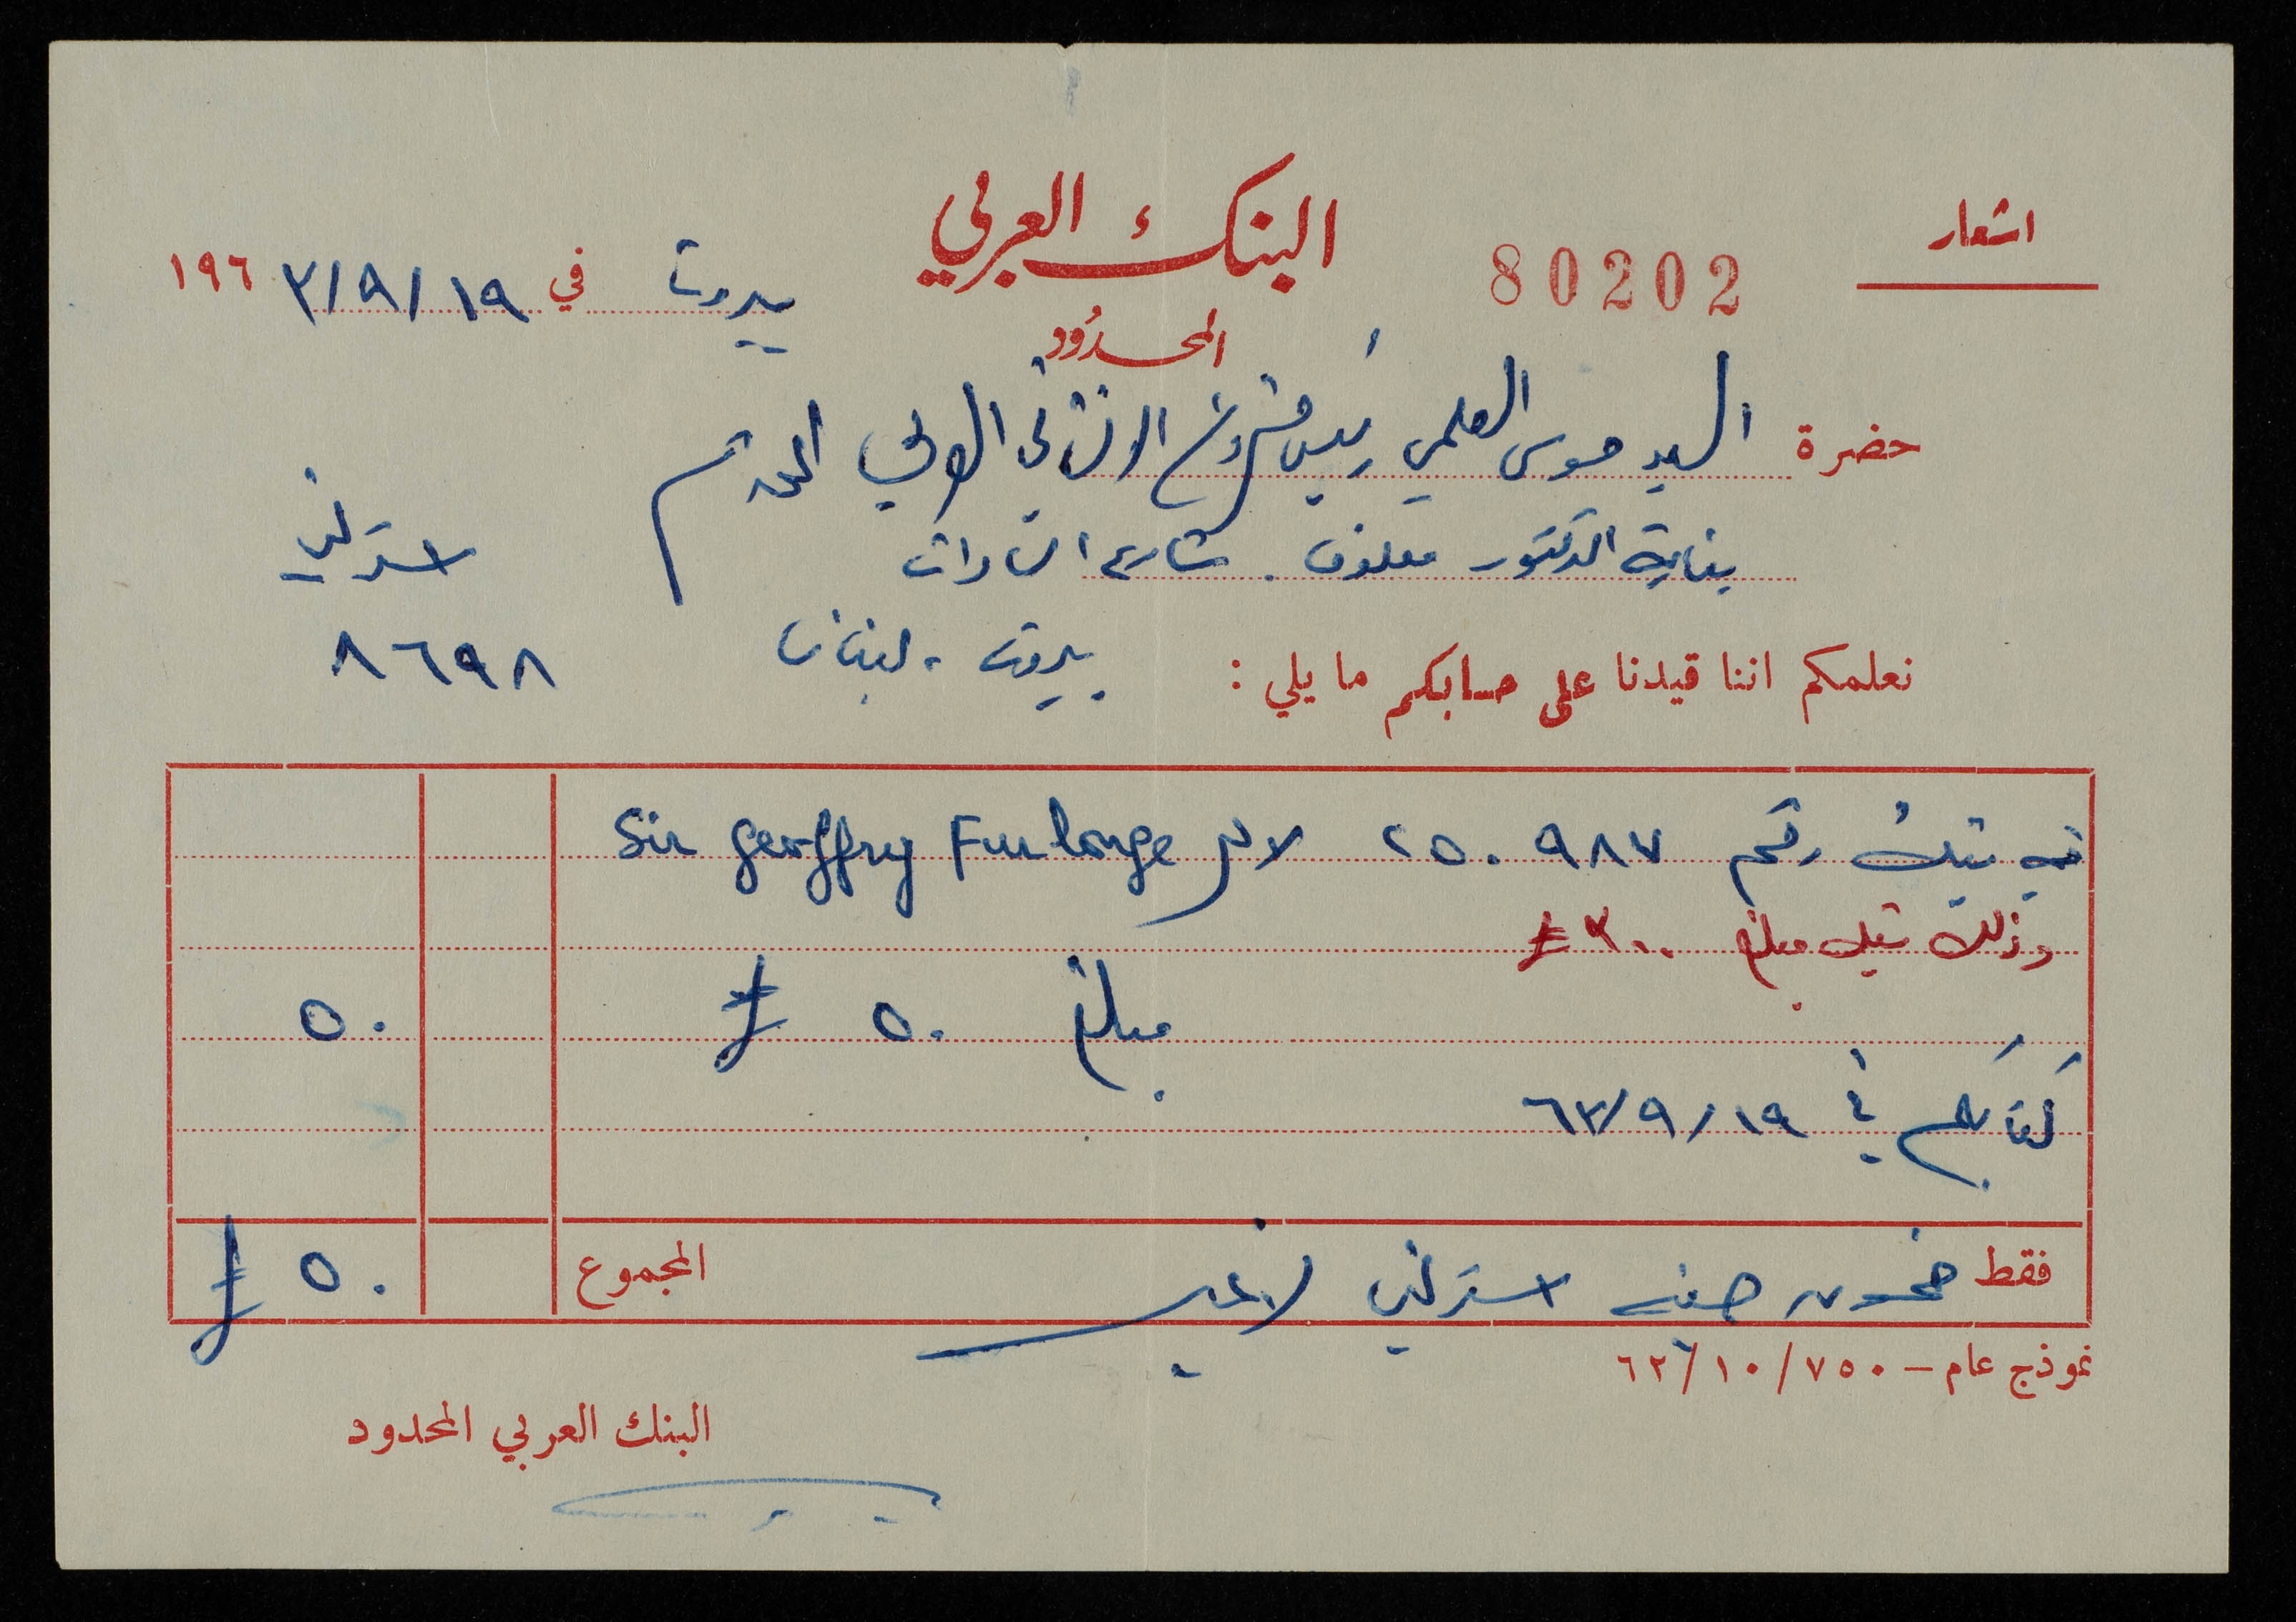 اشعار
80202
البنك العربي
المحدود
بيروت في ١٩/٩/١٩٦٣
حضرة السيد موسى العلمي رئيس مشروع الانشائي العربي المحترم
بناية الدكتور معلوف . شارع السادات
استرليني
نعلمكم اننا قيدنا على حسابكم ما يلي :
بيروت - لبنان
٨٦٩٨
قيمة شيك رقم ٢٥٠٩٨٧ لامر Sir Geoffry Furlonge
وذلك شيك مبلغ ٣٠٠ £
مبلغ ٥٠ £
٥٠
كتابكم في ١٩/٩/٦٣
فقط خمسون جنيه استرليني لا غير
المجموع
٥٠ £
نموذج عام – ٧٥٠/١٠/٦٢
البنك العربي المحدود